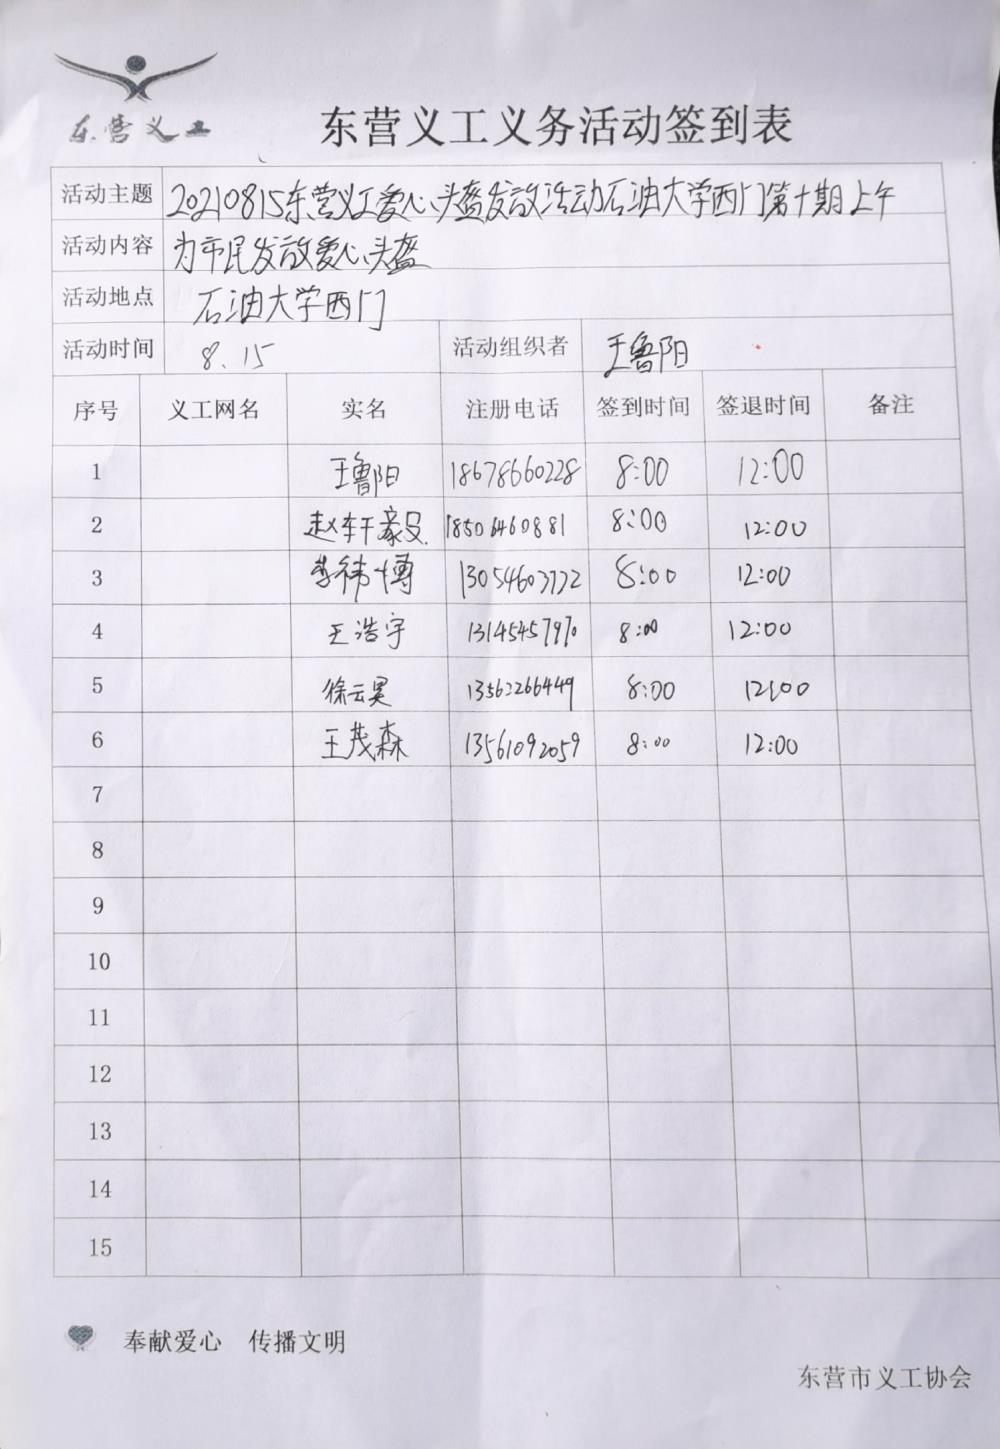 东营义工
东营义工义务活动签到表
活动主题 20210815东营义工爱心头盔发放活动石油大学西门第十期上午
活动内容 为市民发放爱心头盔
活动地点 石油大学西门
活动时间 8.15 活动组织者 王鲁阳
序号 义工网名 实名 注册电话 签到时间 签退时间 备注
1 王鲁阳 18678660228 8:00 12:00
2 赵轩毅 18506460881 8:00 12:00
3 李祎博 13054603772 8:00 12:00
4 王浩宇 13145457970 8:00 12:00
5 徐云昊 13562266449 8:00 12:00
6 王茂森 13561092059 8:00 12:00
7
8
9
10
11
12
13
14
15
奉献爱心 传播文明
东营市义工协会